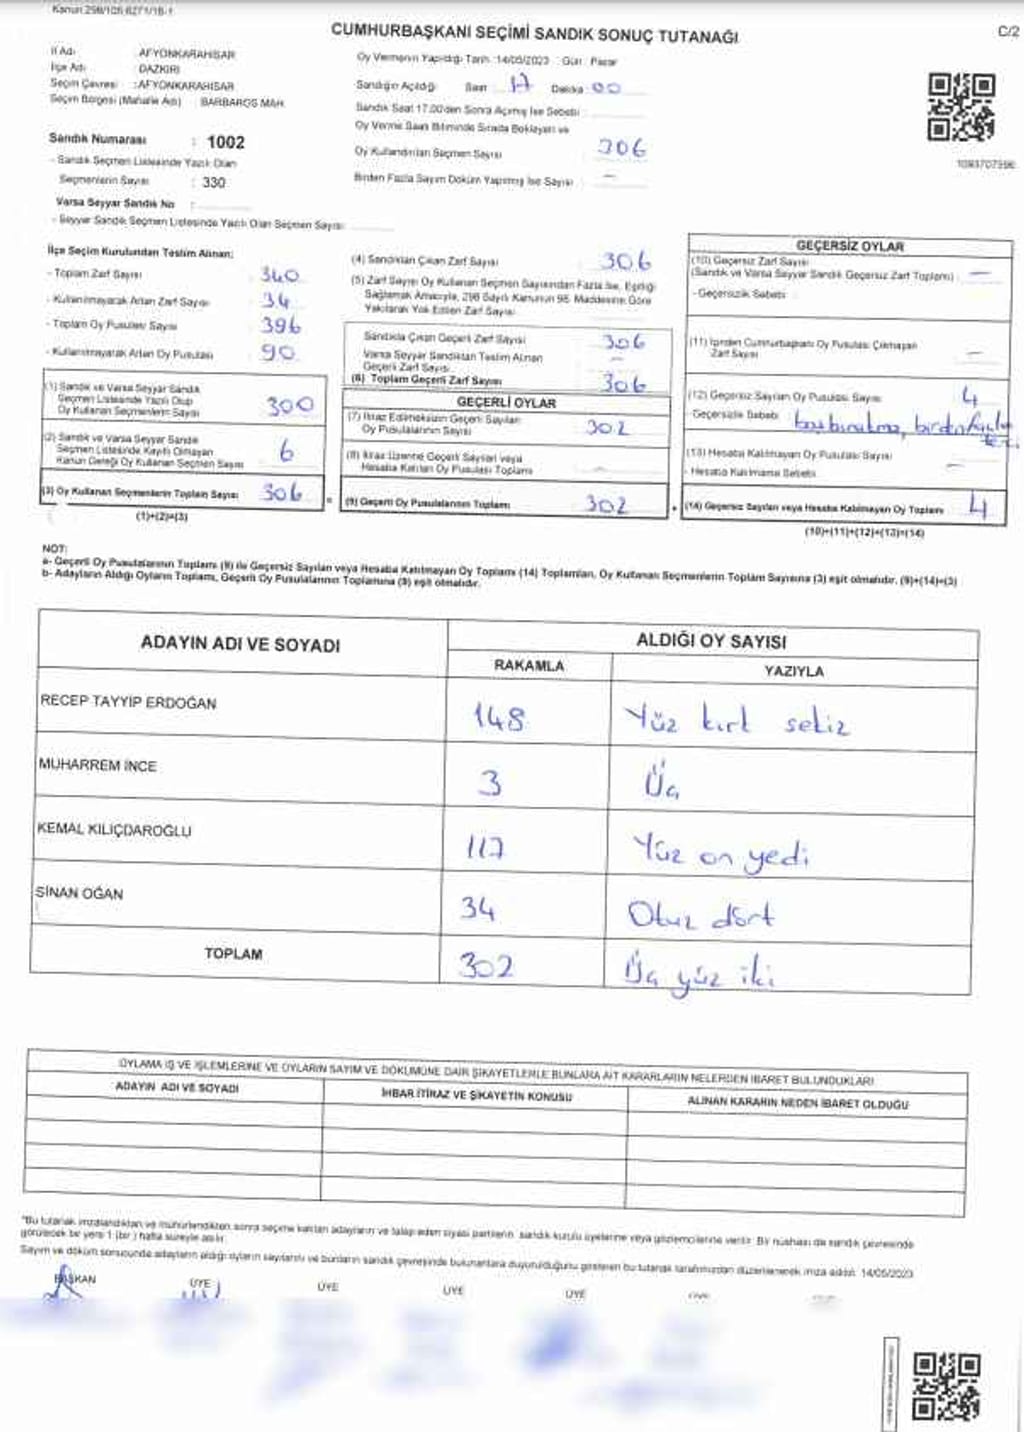 Kanun 298/105-6271/18-1
CUMHURBAŞKANI SEÇİMİ SANDIK SONUÇ TUTANAĞI
C/2
İl Adı : AFYONKARAHİSAR
İlçe Adı : DAZKIRI
Seçim Çevresi : AFYONKARAHİSAR
Seçim Bölgesi (Mahalle Adı) : BARBAROS MAH.
Sandık Numarası : 1002
- Sandık Seçmen Listesinde Yazılı Olan
Seçmenlerin Sayısı : 330
Varsa Seyyar Sandık No :
- Seyyar Sandık Seçmen Listesinde Yazılı Olan Seçmen Sayısı:
Oy Vermenin Yapıldığı Tarih :14/05/2023 Gün : Pazar
Sandığın Açıldığı Saat : 17 Dakika : 00
Sandık Saat 17.00'den Sonra Açılmış İse Sebebi :
Oy Verme Saati Bitiminde Sırada Bekleyen ve
Oy Kullandırılan Seçmen Sayısı : 306
Birden Fazla Sayım Döküm Yapılmış İse Sayısı : -
1093707596
İlçe Seçim Kurulundan Teslim Alınan;
- Toplam Zarf Sayısı : 340
- Kullanılmayarak Artan Zarf Sayısı : 34
- Toplam Oy Pusulası Sayısı : 396
- Kullanılmayarak Artan Oy Pusulası : 90
(1) Sandık ve Varsa Seyyar Sandık
Seçmen Listesinde Yazılı Olup
Oy Kullanan Seçmenlerin Sayısı : 300
(2) Sandık ve Varsa Seyyar Sandık
Seçmen Listesinde Kayıtlı Olmayan
Kanun Gereği Oy Kullanan Seçmen Sayısı : 6
(3) Oy Kullanan Seçmenlerin Toplam Sayısı : 306
(1)+(2)=(3)
(4) Sandıktan Çıkan Zarf Sayısı : 306
(5) Zarf Sayısı Oy Kullanan Seçmen Sayısından Fazla İse, Eşitliği
Sağlamak Amacıyla, 298 Sayılı Kanunun 98. Maddesine Göre
Yakılarak Yok Edilen Zarf Sayısı :
Sandıkta Çıkan Geçerli Zarf Sayısı : 306
Varsa Seyyar Sandıktan Teslim Alınan
Geçerli Zarf Sayısı : -
(6) Toplam Geçerli Zarf Sayısı : 306
GEÇERLİ OYLAR
(7) İtiraz Edilmeksizin Geçerli Sayılan
Oy Pusulalarının Sayısı : 302
(8) İtiraz Üzerine Geçerli Sayılan veya
Hesaba Katılan Oy Pusulası Toplamı : -
(9) Geçerli Oy Pusulalarının Toplamı : 302
GEÇERSİZ OYLAR
(10) Geçersiz Zarf Sayısı
(Sandık ve Varsa Seyyar Sandık Geçersiz Zarf Toplamı) : -
- Geçersizlik Sebebi :
(11) İçinden Cumhurbaşkanı Oy Pusulası Çıkmayan
Zarf Sayısı : -
(12) Geçersiz Sayılan Oy Pusulası Sayısı : 4
Geçersizlik Sebebi : boş bırakma, birden fazla
(13) Hesaba Katılmayan Oy Pusulası Sayısı : -
- Hesaba Katılmama Sebebi :
(14) Geçersiz Sayılan veya Hesaba Katılmayan Oy Toplamı : 4
(10)+(11)+(12)+(13)=(14)
NOT:
a- Geçerli Oy Pusulalarının Toplamı (9) ile Geçersiz Sayılan veya Hesaba Katılmayan Oy Toplamı (14) Toplamları, Oy Kullanan Seçmenlerin Toplam Sayısına (3) eşit olmalıdır. (9)+(14)=(3)
b- Adayların Aldığı Oyların Toplamı, Geçerli Oy Pusulalarının Toplamına (9) eşit olmalıdır.
ADAYIN ADI VE SOYADI ALDIĞI OY SAYISI
RAKAMLA YAZIYLA
RECEP TAYYİP ERDOĞAN 148 Yüz kırk sekiz
MUHARREM İNCE 3 Üç
KEMAL KILIÇDAROĞLU 117 Yüz on yedi
SİNAN OĞAN 34 Otuz dört
TOPLAM 302 Üç yüz iki
OYLAMA İŞ VE İŞLEMLERİNE VE OYLARIN SAYIM VE DÖKÜMÜNE DAİR ŞİKAYETLERLE BUNLARA AİT KARARLARIN NELERDEN İBARET BULUNDUKLARI
ADAYIN ADI VE SOYADI İHBAR İTİRAZ VE ŞİKAYETİN KONUSU ALINAN KARARIN NEDEN İBARET OLDUĞU
*Bu tutanak imzalandıktan ve mühürlendikten sonra seçime katılan adayların ve talep eden siyasi partilerin sandık kurulu üyelerine veya gözlemcilerine verilir. Bir nüshası da sandık çevresinde
görülecek bir yere 1 (bir) hafta süreyle asılır.
Sayım ve döküm sonucunda adayların aldığı oyların sayılarını ve bunların sandık çevresinde bulunanlara duyurulduğunu gösteren bu tutanak tarafımızdan düzenlenerek imza edildi. 14/05/2023
BAŞKAN ÜYE ÜYE ÜYE ÜYE